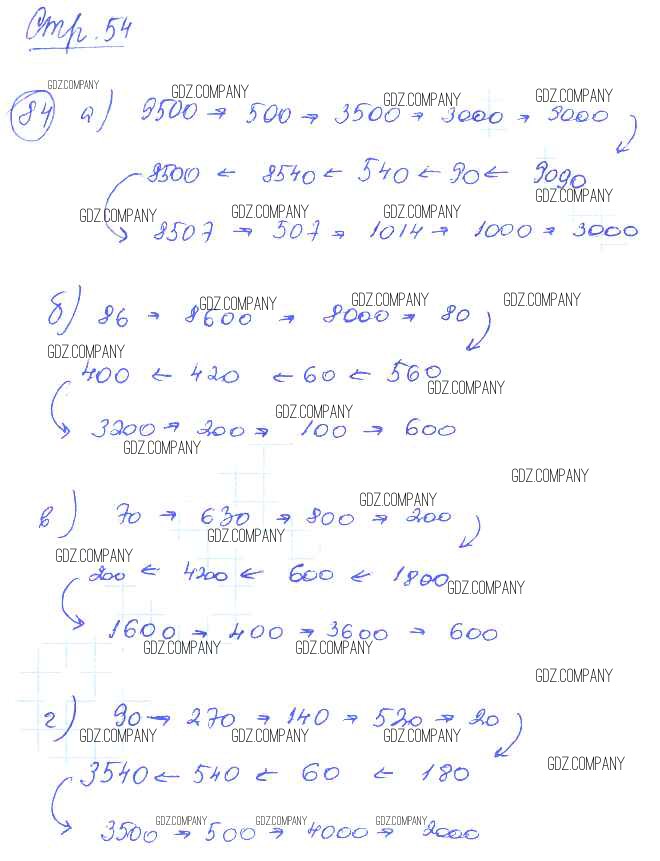 Стр. 54
GDZ.COMPANY GDZ.COMPANY GDZ.COMPANY GDZ.COMPANY
84 а) 9500 → 500 → 3500 → 3000 → 9000
8500 ← 8540 ← 540 ← 90 ← 9090
GDZ.COMPANY GDZ.COMPANY GDZ.COMPANY GDZ.COMPANY
8507 → 507 → 1014 → 1000 → 3000
GDZ.COMPANY GDZ.COMPANY GDZ.COMPANY
б) 86 → 8600 → 8000 → 80
GDZ.COMPANY
400 ← 420 ← 60 ← 560
GDZ.COMPANY
GDZ.COMPANY
3200 → 200 → 100 → 600
GDZ.COMPANY
GDZ.COMPANY
GDZ.COMPANY
в) 70 → 630 → 800 → 200
GDZ.COMPANY
GDZ.COMPANY
200 ← 4200 ← 600 ← 1800
GDZ.COMPANY
1600 → 400 → 3600 → 600
GDZ.COMPANY GDZ.COMPANY
GDZ.COMPANY
г) 90 → 270 → 140 → 520 → 20
GDZ.COMPANY GDZ.COMPANY GDZ.COMPANY
GDZ.COMPANY
3540 ← 540 ← 60 ← 180
GDZ.COMPANY GDZ.COMPANY GDZ.COMPANY
3500 → 500 → 4000 → 2000